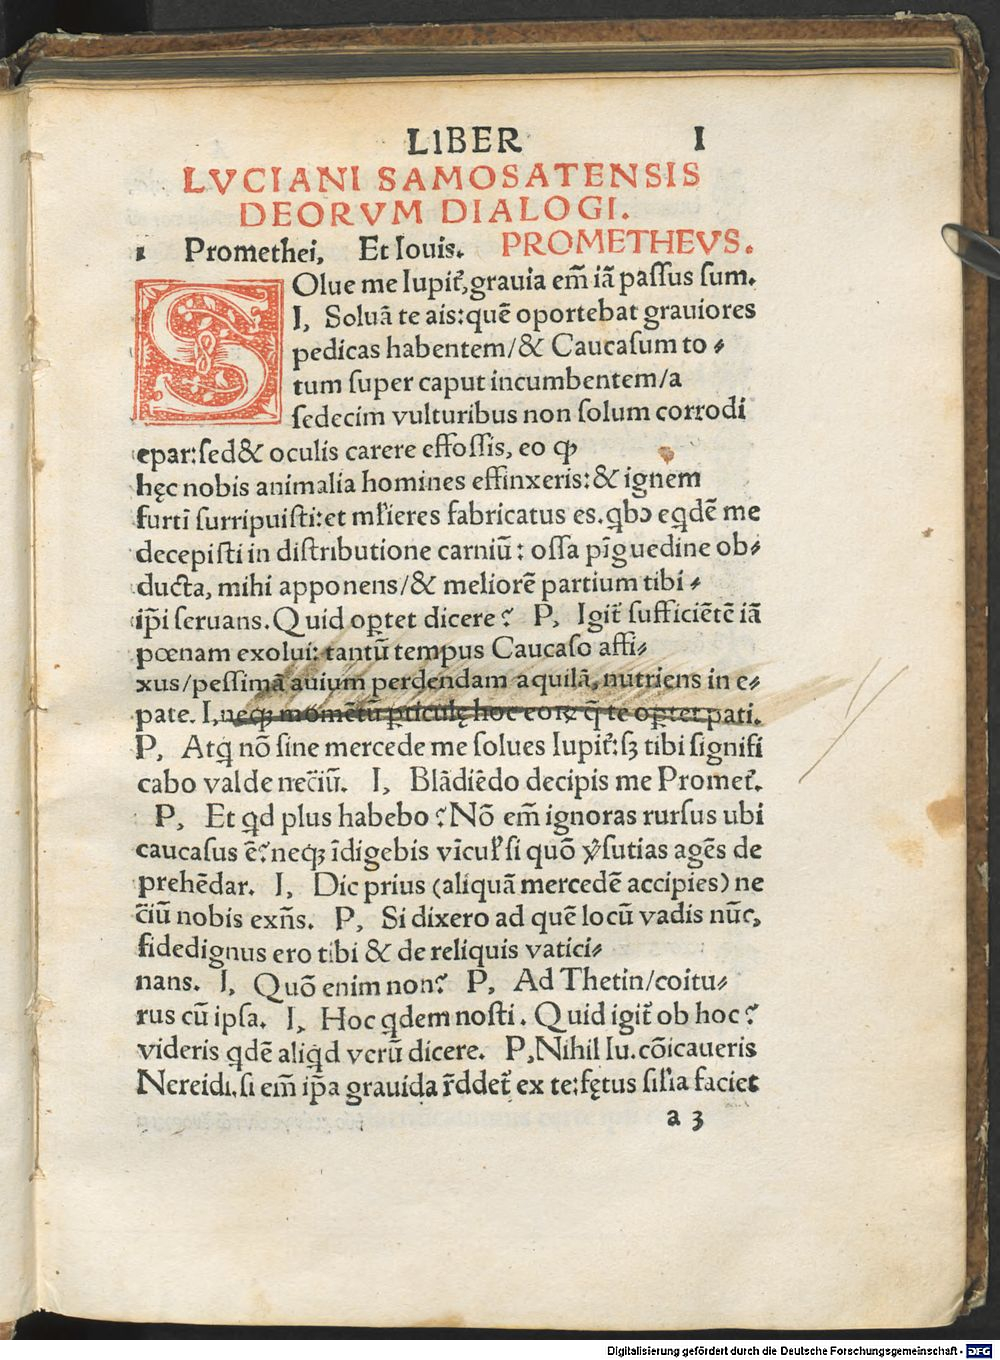 LIBER I
LVCIANI SAMOSATENSIS
DEORVM DIALOGI.
Promethei, Et Iouis. PROMETHEVS.
SOlue me Iupit̃,grauia em̃ iã passus sum.
I, Soluã te ais:quẽ oportebat grauiores
pedicas habentem/& Caucasum to⸗
tum super caput incumbentem/a
sedecim vulturibus non solum corrodi
epar:sed& oculis carere effossis, eo ꝙ
hęc nobis animalia homines effinxeris:& ignem
furtĩ surripuisti:et ml̃ieres fabricatus es.q̃bꝰ eq̃dẽ me
decepisti in distributione carniũ: ossa pĩguedine ob⸗
ducta, mihi apponens/& meliorẽ partium tibi⸗
ip̃i seruans.Quid oꝑtet dicere? P, Igit̃ sufficiẽtẽ iã
pœnam exolui: tantũ tempus Caucaso affi⸗
xus/pessimã auium perdendam aquilã, nutriens in e⸗
pate. I,neqꝫ momẽtũ ꝑticulę hoc eoꝝ q̃ te oꝑtet pati.
P, Atq̃ nõ sine mercede me solues Iupit̃:sꝫ tibi signifi
cabo valde nec̃iũ. I, Blãdiẽdo decipis me Promet̃.
P, Et qd plus habebo? Nõ em̃ ignoras rursus ubi
caucasus ẽ? neqꝫ ĩdigebis vĩcul̃ si quõ ỹsutias agẽs de
prehẽdar. I, Dic prius (aliquã mercedẽ accipies) ne
c̃iũ nobis exñs. P, Si dixero ad quẽ locũ vadis nũc,
fidedignus ero tibi & de reliquis vatici⸗
nans. I, Quõ enim non? P, Ad Thetin/coitu⸗
rus cũ ipsa. I, Hoc q̃dem nosti. Quid igit̃ ob hoc?
videris q̃dẽ aliq̃d verũ dicere. P,Nihil Iu. cõicaueris
Nereidi.si em̃ ip̃a grauida r̃ddet̃ ex te:fętus sil̃ia faciet
a 3
Digitalisierung gefördert durch die Deutsche Forschungsgemeinschaft - DFG